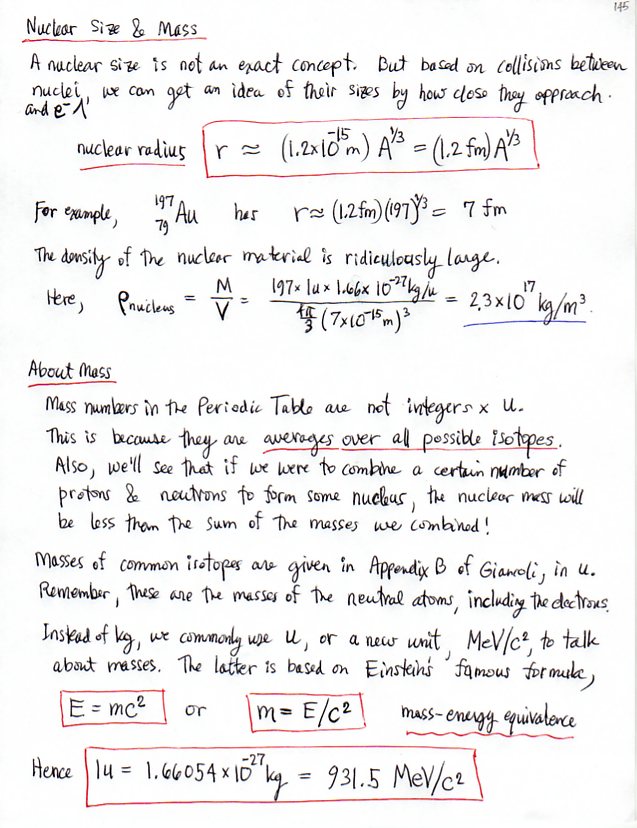 145
Nuclear Size & Mass
A nuclear size is not an exact concept. But based on collisions between
nuclei, we can get an idea of their sizes by how close they approach.
and e⁻
nuclear radius r ≈ (1.2×10⁻¹⁵m) A^1/3 = (1.2 fm) A^1/3
For example, ¹⁹⁷₇₉Au has r≈ (1.2fm)(197)^1/3 = 7 fm
The density of the nuclear material is ridiculously large.
Here, ρnucleus = M/V = 197× 1u × 1.66× 10⁻²⁷kg/u / 4π/3 (7×10⁻¹⁵m)³ = 2.3×10¹⁷ kg/m³.
About Mass
Mass numbers in the Periodic Table are not integers × u.
This is because they are averages over all possible isotopes.
Also, we'll see that if we were to combine a certain number of
protons & neutrons to form some nucleus, the nuclear mass will
be less than the sum of the masses we combined!
Masses of common isotopes are given in Appendix B of Giancoli, in u.
Remember, these are the masses of the neutral atoms, including the electrons.
Instead of kg, we commonly use u, or a new unit, MeV/c², to talk
about masses. The latter is based on Einstein's famous formula,
E = mc² or m = E/c² mass-energy equivalence
Hence 1u = 1.66054×10⁻²⁷kg = 931.5 MeV/c²